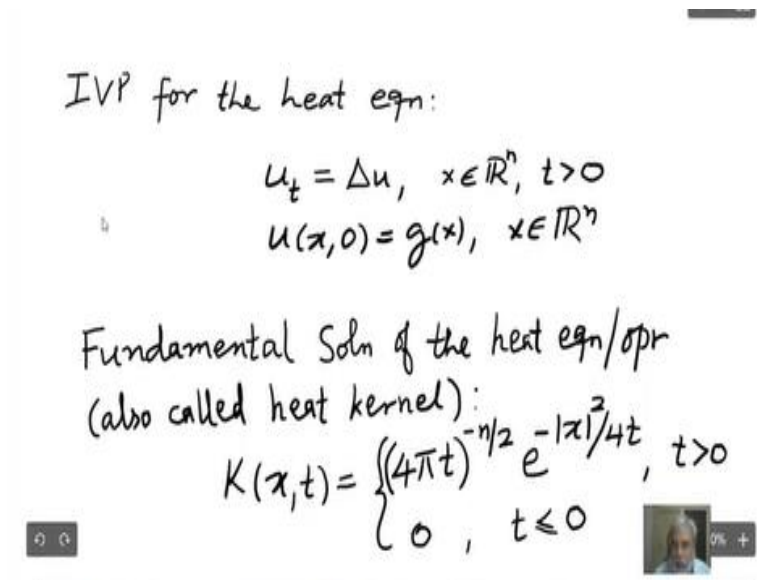 IVP for the heat eqn:
u_t = Δu, x ∈ ℝⁿ, t>0
u(x,0) = g(x), x ∈ ℝⁿ
Fundamental Soln of the heat eqn/opr
(also called heat kernel):
K(x,t) = { (4πt)^{-n/2} e^{-|x|²/4t}, t>0
0, t≤0
0% +